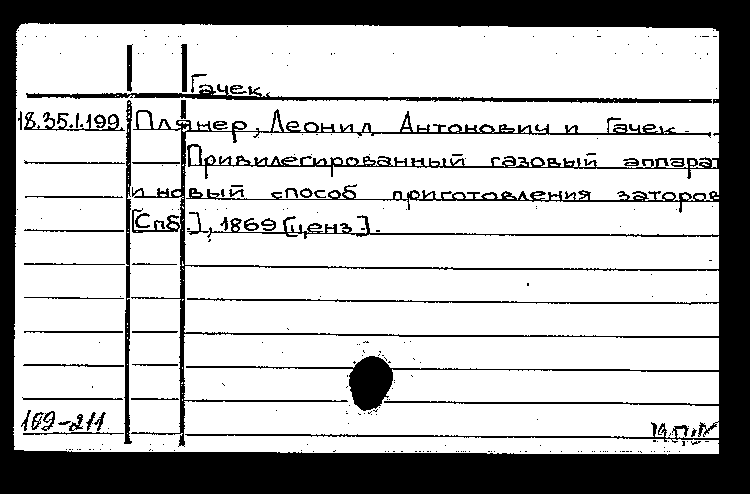 Гачек.
18.35.1.199. Плянер, Леонид Антонович и Гачек.
Привилегированный газовый аппарат
и новый способ приготовления заторов
[Спб], 1869 [ценз].
109-211